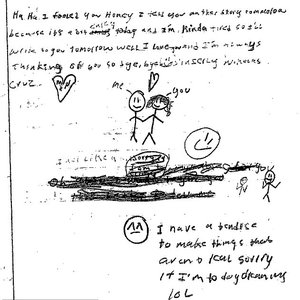 Ha Ha I fooled you Honey I tell you another story tomorrow
because it's a bit today and I'm Kinda tired so I'll
write to you tomorrow well I love you and I'm always
thinking of you so bye, bye sincerly Nikolas
Cruz
me
you
Just like a
I have a tendise
to make things that
aren't real sorry
if I'm to daydreaming
lol